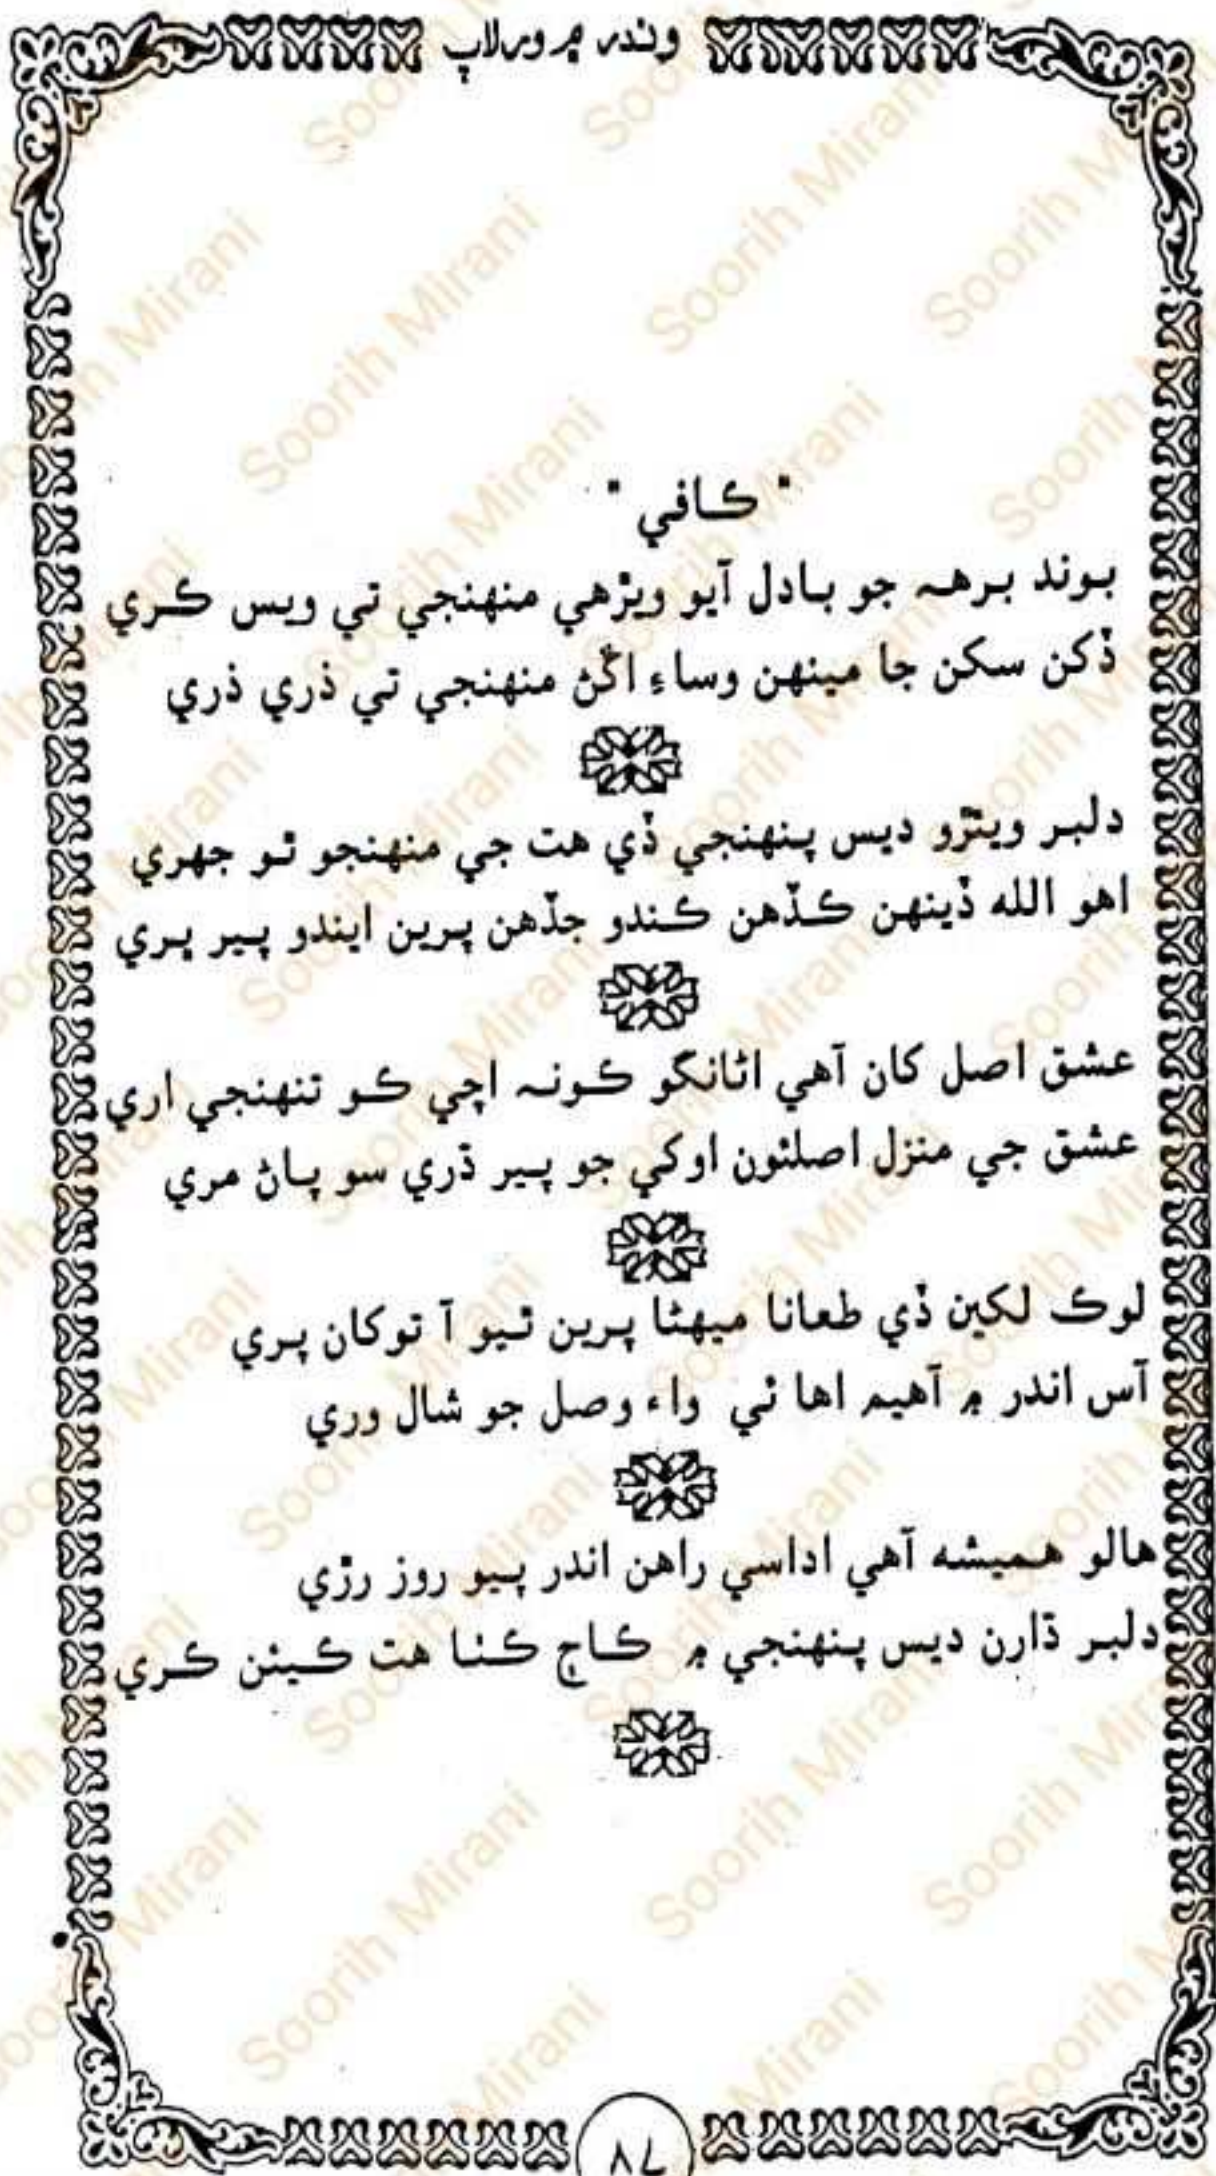 وندر ۾ ورلاپ
" ڪافي "
بوند برهہ جو بادل آيو ويڙهي منهنجي تي ويس ڪري
ڏکن سکن جا مينهن وساءِ اڱڻ منهنجي تي ذري ذري
دلبر ويٺڙو ديس پنهنجي ڏي هت جي منهنجو ٿو جهري
اهو الله ڏينهن ڪڏهن ڪندو جڏهن پرين ايندو پير ڀري
عشق اصل کان آهي اٿانگو ڪونہ اچي ڪو تنهنجي اري
عشق جي منزل اصلئون اوکي جو پير ڌري سو پاڻ مري
لوڪ لکين ڏي طعانا ميهڻا پرين ٿيو آ توکان پري
آس اندر ۾ آهيم اها ئي واءِ وصل جو شال وري
هالو هميشه آهي اداسي راهن اندر پيو روز رڙي
دلبر ڌارن ديس پنهنجي ۾ ڪاڄ ڪٺا هت ڪيئن ڪري
۷۸
Soorih Mirani